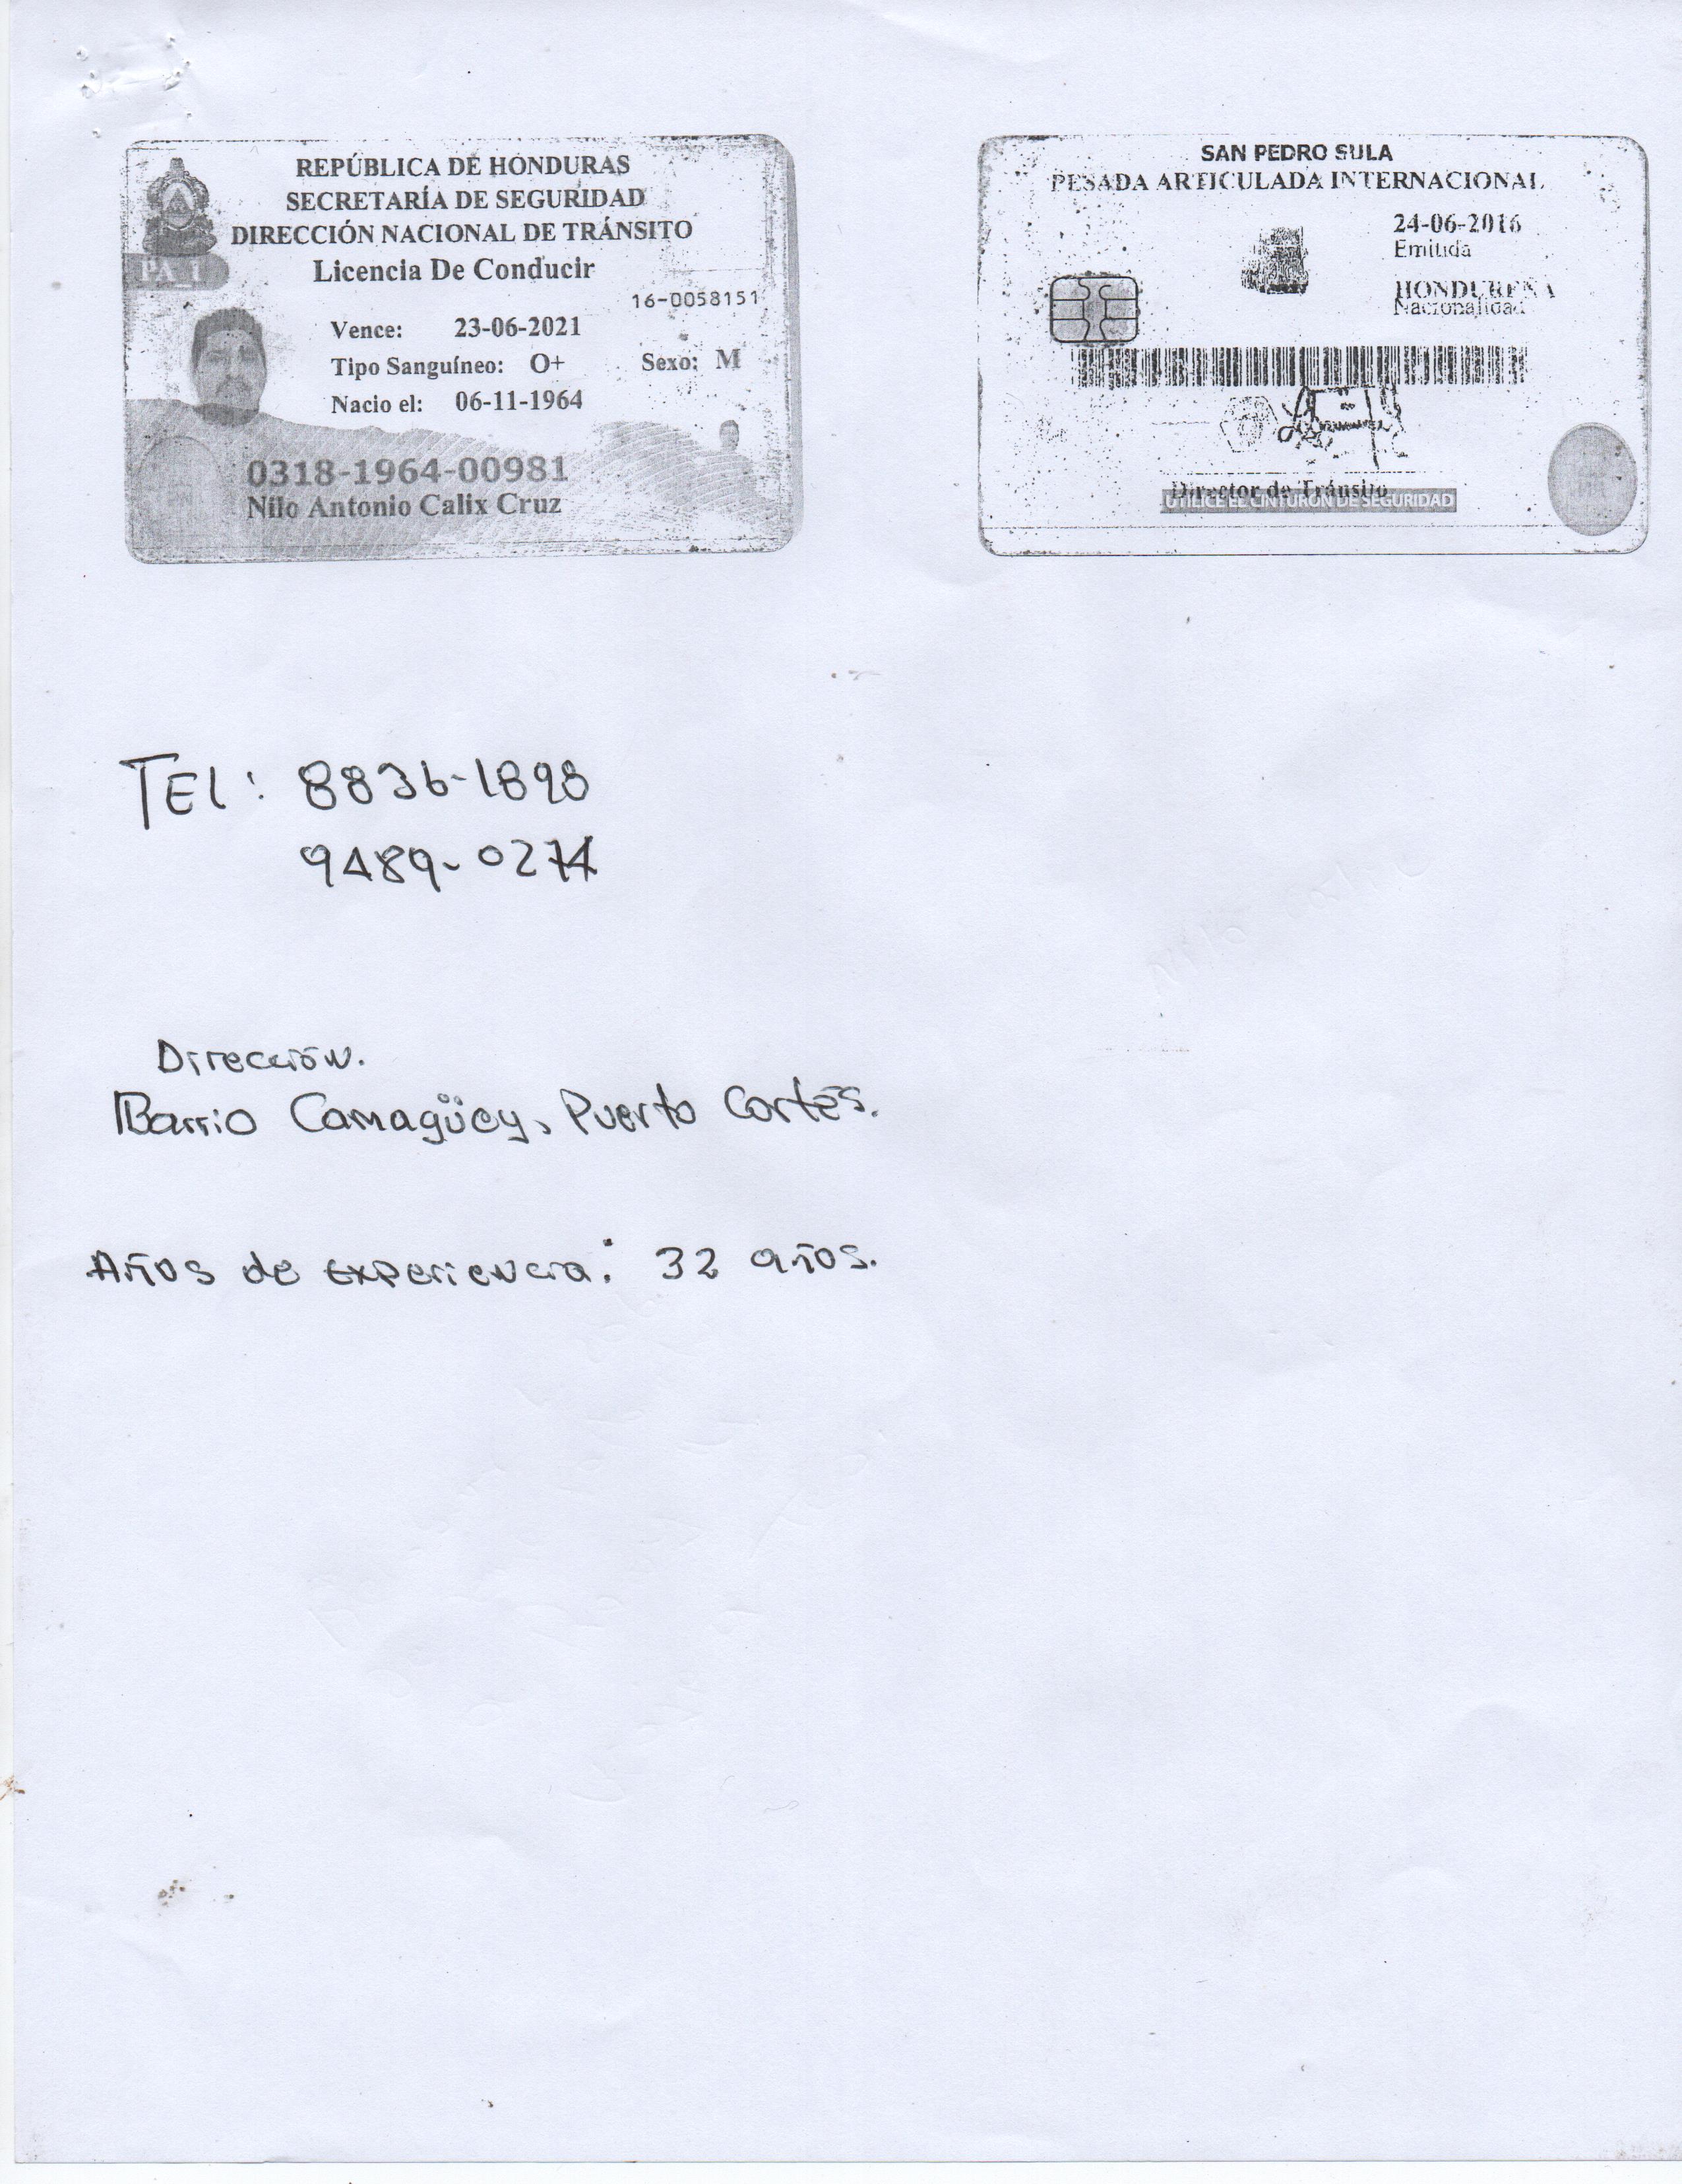 REPÚBLICA DE HONDURAS
SECRETARÍA DE SEGURIDAD
DIRECCIÓN NACIONAL DE TRÁNSITO
Licencia De Conducir
PA 1
16-0058151
Vence: 23-06-2021
Tipo Sanguíneo: O+ Sexo: M
Nacio el: 06-11-1964
0318-1964-00981
Nilo Antonio Calix Cruz
SAN PEDRO SULA
PESADA ARTICULADA INTERNACIONAL
24-06-2016
Emitida
HONDUREÑA
Nacionalidad
Director de Tránsito
UTILICE EL CINTURON DE SEGURIDAD
TEl: 8836-1898
9489-027
Dirección.
Barrio Camagüey, Puerto Cortés.
Años de experiencia: 32 años.